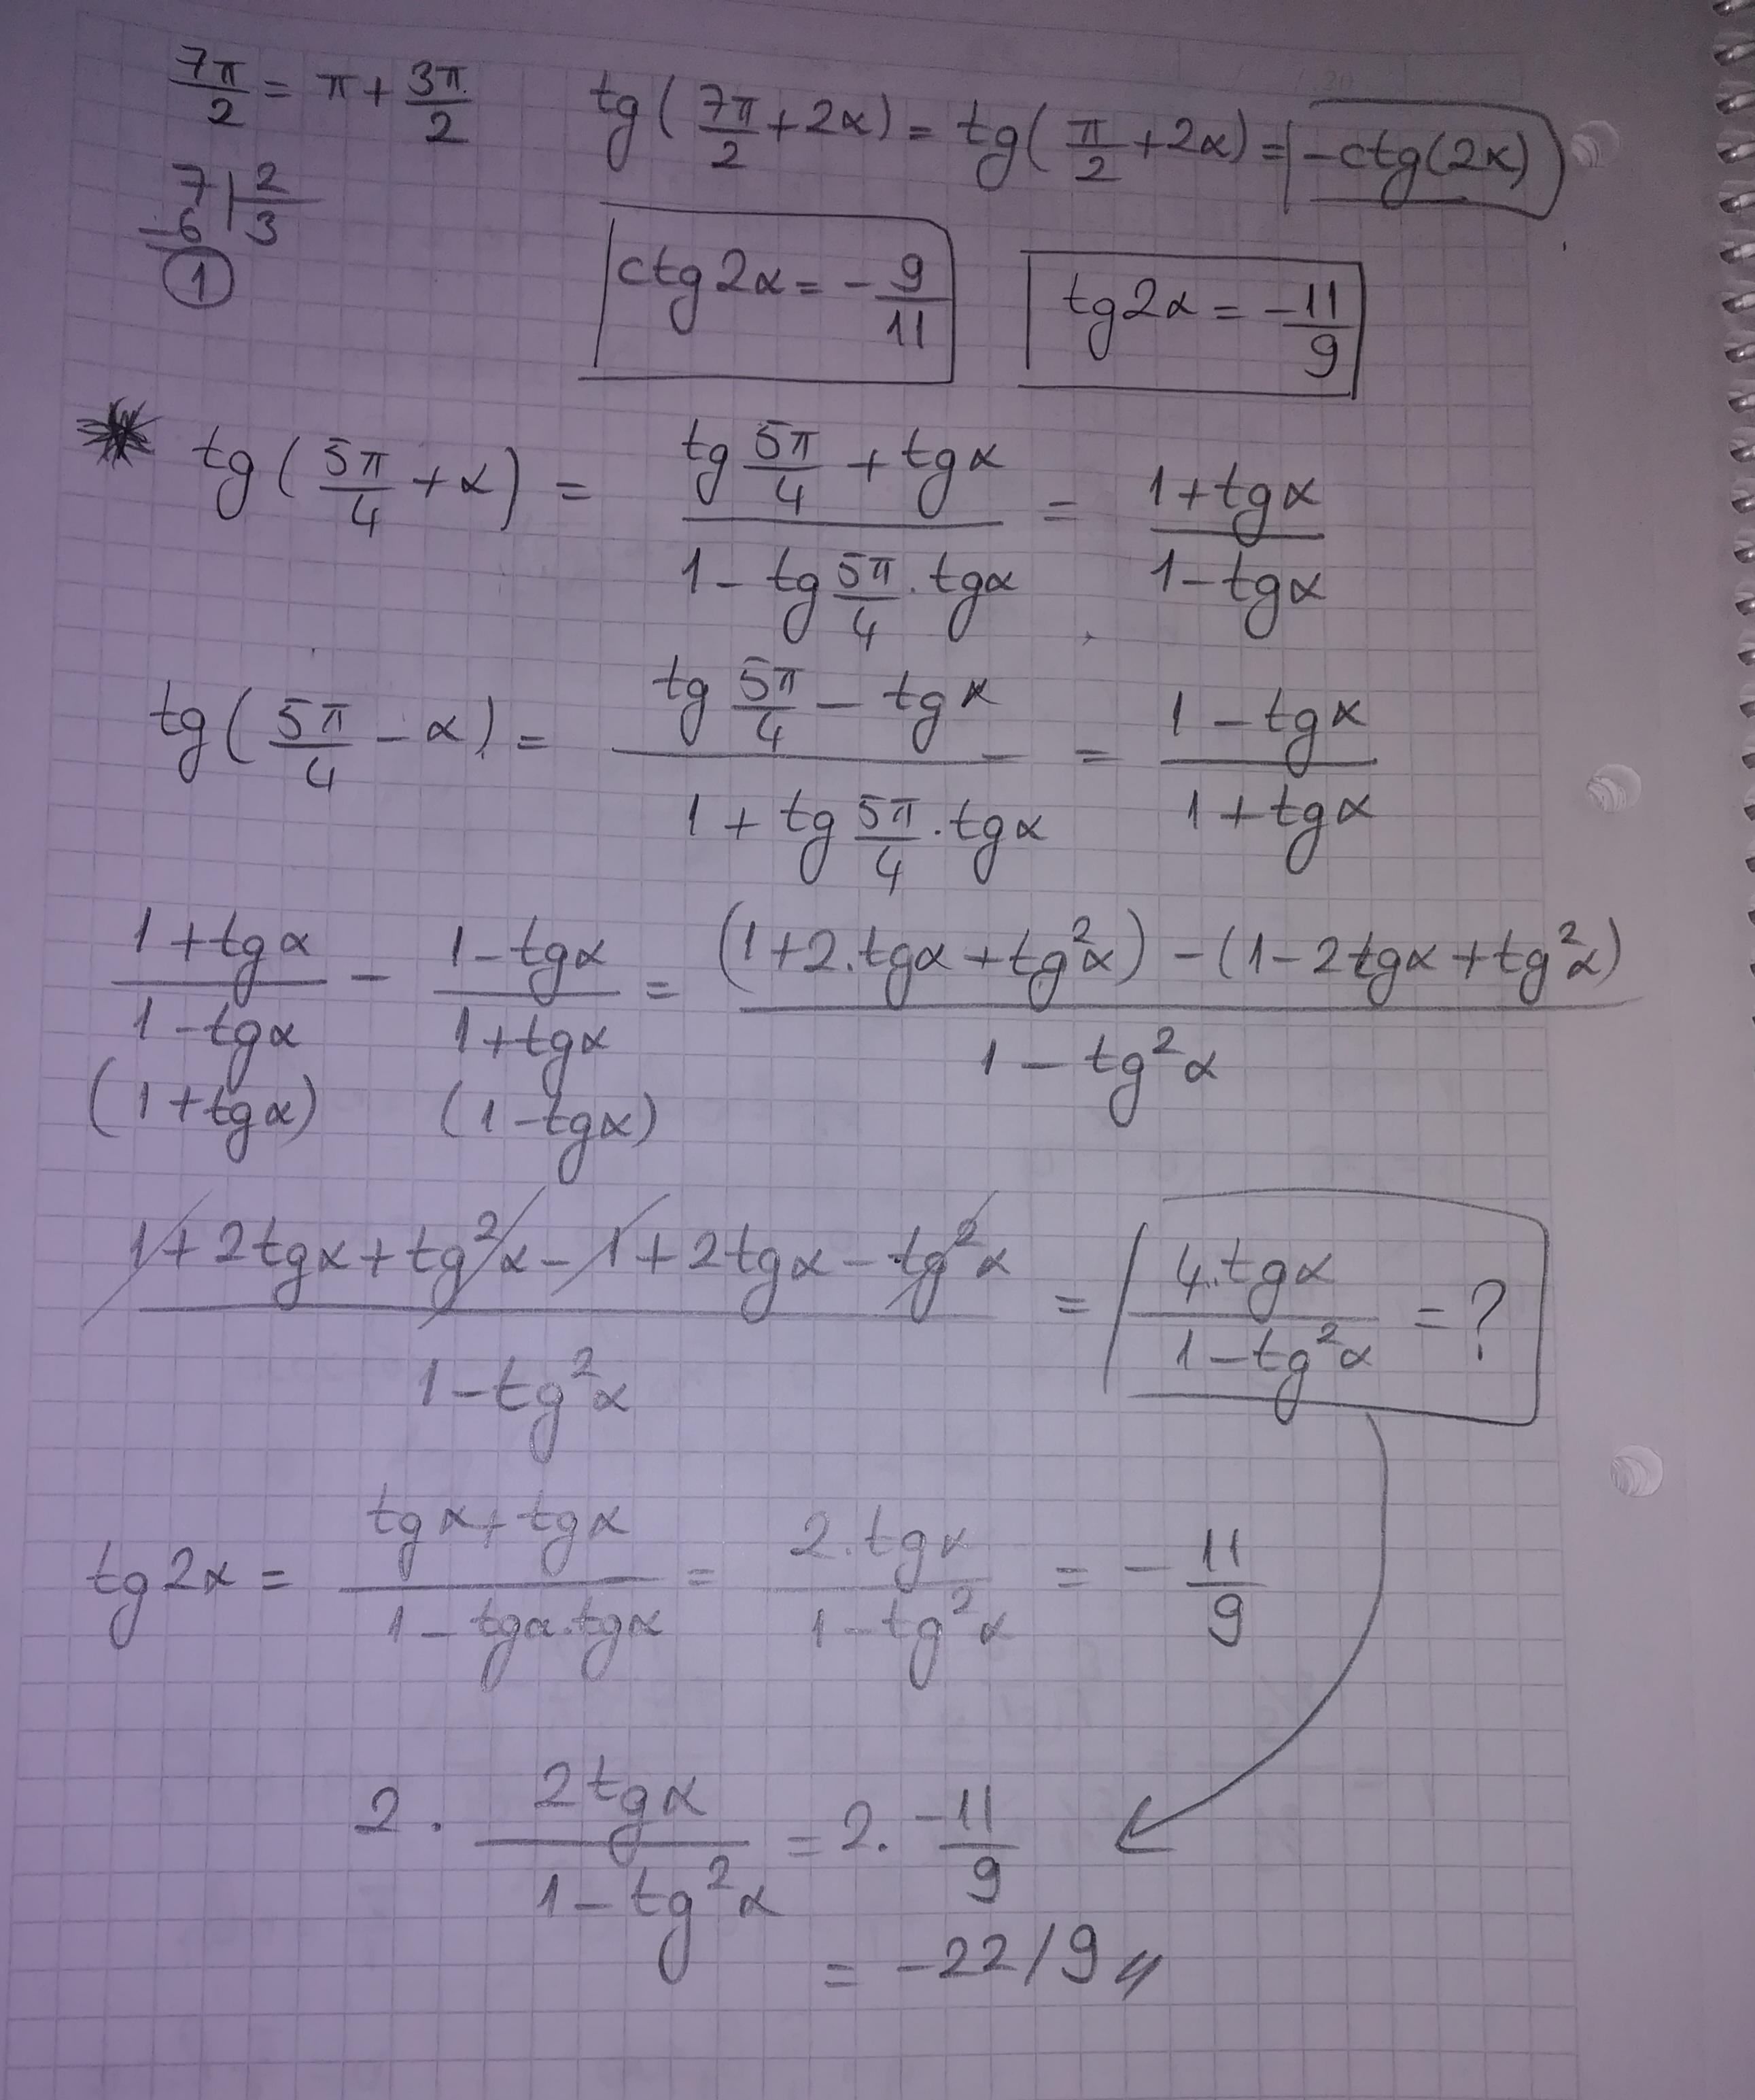 7π/2 = π + 3π/2
tg(7π/2 + 2α) = tg(π/2 + 2α) = -ctg(2α)
7 | 2
-6 | 3
1
ctg2α = -9/11
tg2α = -11/9
tg(5π/4 + α) = (tg 5π/4 + tgα)/(1 - tg 5π/4 . tgα) = (1 + tgα)/(1 - tgα)
tg(5π/4 - α) = (tg 5π/4 - tgα)/(1 + tg 5π/4 . tgα) = (1 - tgα)/(1 + tgα)
(1 + tgα)/(1 - tgα) - (1 - tgα)/(1 + tgα) = ((1 + 2.tgα + tg²α) - (1 - 2tgα + tg²α))/(1 - tg²α)
(1 + tgα) (1 - tgα)
(1 + 2tgα + tg²α - 1 + 2tgα - tg²α)/(1 - tg²α) = 4.tgα/(1 - tg²α) = ?
tg2α = (tgα + tgα)/(1 - tgα.tgα) = 2.tgα/(1 - tg²α) = -11/9
2 . 2tgα/(1 - tg²α) = 2. -11/9
= -22/9